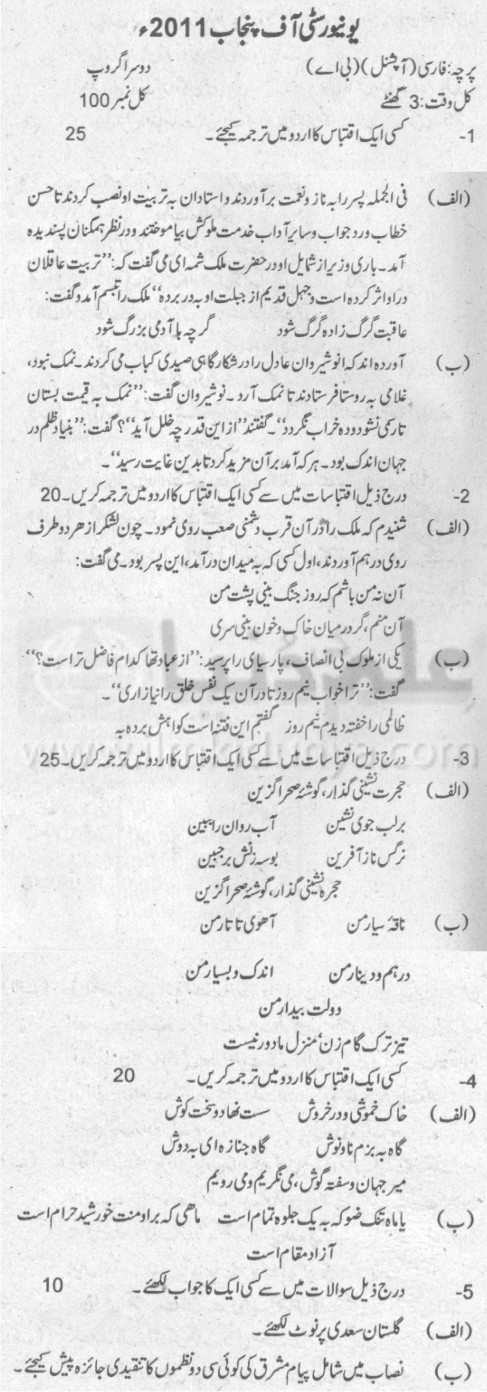 یونیورسٹی آف پنجاب 2011ء
پرچہ: فارسی (آپشنل) (بی اے) دوسرا گروپ
کل وقت: 3 گھنٹے کل نمبر 100
1- کسی ایک اقتباس کا اردو میں ترجمہ کیجئے۔ 25
(الف) فی الجملہ پسر را بہ ناز و نعمت برآوردند و استادان بہ تربیت او نصب کردند تا حسن
خطاب و رد جواب و سایر آداب خدمت ملوکش بیاموختند و در نظر ہمگنان پسندیدہ
آمد۔ باری وزیر از شمایل او در حضرت ملک شمہ ای می گفت کہ: ”تربیت عاقلان
در او اثر کردہ است و جہل قدیم از جبلت او بہ در بردہ“ ملک را تبسم آمد و گفت:
عاقبت گرگ زادہ گرگ شود گرچہ با آدمی بزرگ شود
(ب) آوردہ اند کہ انوشیروان عادل را در شکار گاہی صیدی کباب می کردند۔ نمک نبود،
غلامی بہ روستا فرستادند تا نمک آرد۔ نوشیروان گفت: ”نمک بہ قیمت بستان
تا رسمی نشود و دہ خراب نگردد“۔ گفتند ”از این قدر چہ خلل آید“؟ گفت: ”بنیاد ظلم در
جہان اندک بود۔ ہر کہ آمد بر آن مزید کرد تا بدین غایت رسید“۔
2- درج ذیل اقتباسات میں سے کسی ایک اقتباس کا اردو میں ترجمہ کریں۔ 20
(الف) شنیدم کہ ملک را در آن قرب دشمنی صعب روی نمود۔ چون لشکر از ھر دو طرف
روی در ہم آوردند، اول کسی کہ بہ میدان در آمد، این پسر بود۔ می گفت:
آن نہ من باشم کہ روز جنگ بینی پشت من
آن منم، گر در میان خاک و خون بینی سری
(ب) یکی از ملوک بی انصاف، پارسیای را پرسید: ”از عبادتھا کدام فاضل تر است؟“
گفت: ”ترا خواب نیم روز تا در آن یک نفس خلق را نیازاری“۔
ظالمی را خفتہ دیدم نیم روز گفتم این فتنہ است کو ابش بردہ بہ
3- درج ذیل اقتباسات میں سے کسی ایک اقتباس کا اردو میں ترجمہ کریں۔ 25
(الف) حجرت نشینی گذار، گوشۂ صحرا گزین
بر لب جوی نشین آب روان را ببین
نرگس ناز آفرین بوسہ زنش بر جبین
حجرہ نشینی گذار، گوشۂ صحرا گزین
(ب) ناقۂ سیار من آھوی تاتار من
درہم و دینار من اندک و بسیار من
دولت بیدار من
تیز ترک گام زن، منزل ما دور نیست
4- کسی ایک اقتباس کا اردو میں ترجمہ کریں۔ 20
(الف) خاک خموش و در خروش سست نھاد و سخت کوش
گاہ بہ بزم ناو نوش گاہ جنازہ ای بہ دوش
میر جہان و سفتہ گوش، می نگریم و می رویم
(ب) یا ماہ تنک ضو کہ بہ یک جلوہ تمام است ماھی کہ بر او منت خورشید حرام است
آزاد مقام است
5- درج ذیل سوالات میں سے کسی ایک کا جواب لکھئے۔ 10
(الف) گلستان سعدی پر نوٹ لکھئے۔
(ب) نصاب میں شامل پیام مشرق کی کوئی سی دو نظموں کا تنقیدی جائزہ پیش کیجئے۔